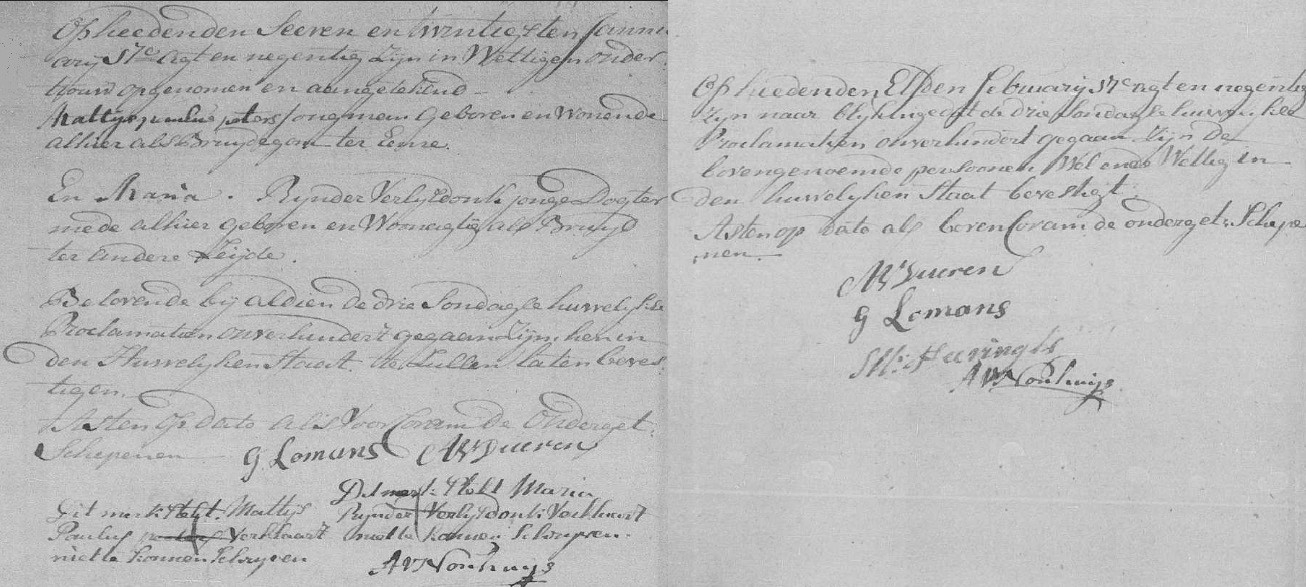 Op heeden den Seeven en twintigsten Jannu
arij 17c agt en negentig Zijn in Wettigen onder
trouw opgenomen en aangetekend
Mattijs paulus peters jongman Geboren en Wonende
alhier als Bruijdegom ter Eenre.
En Maria. Rynder Verlijsdonk jonge Dogter
mede alhier geboren en Woonagtig als Bruijd
ter andere Zeijde.
Belovende bij aldien de drie Sondagse huwelijkse
Proclamatien onverhindert gegaan Zijn, hen in
den Huwelijken Staat te Zullen laten beves
tigen.
Asten op dato als voor Coram de Onderget:
Schepenen G Lomans AVDueren
Dit merk stelt Maria
Rynder Verlijsdonk Verklaart
niet te konnen Schrijven.
Dit merk stelt Mattijs
Paulus peters Verklaart
niet te konnen Schrijven
AVNouhuijs
Op heeden den Elfden February 17c agt en negentig
Zijn naar blijk de drie Sondagse huwelijkse
Proclamatien onverhindert gegaan Zijn De
bovengenoemde persoonen Wel ende Wettig in
den huwelyken Staat bevestigt.
Asten op dato als boven Coram de onderget: Schepe
nen.
AVDueren
G Lomans
AVNouhuijs